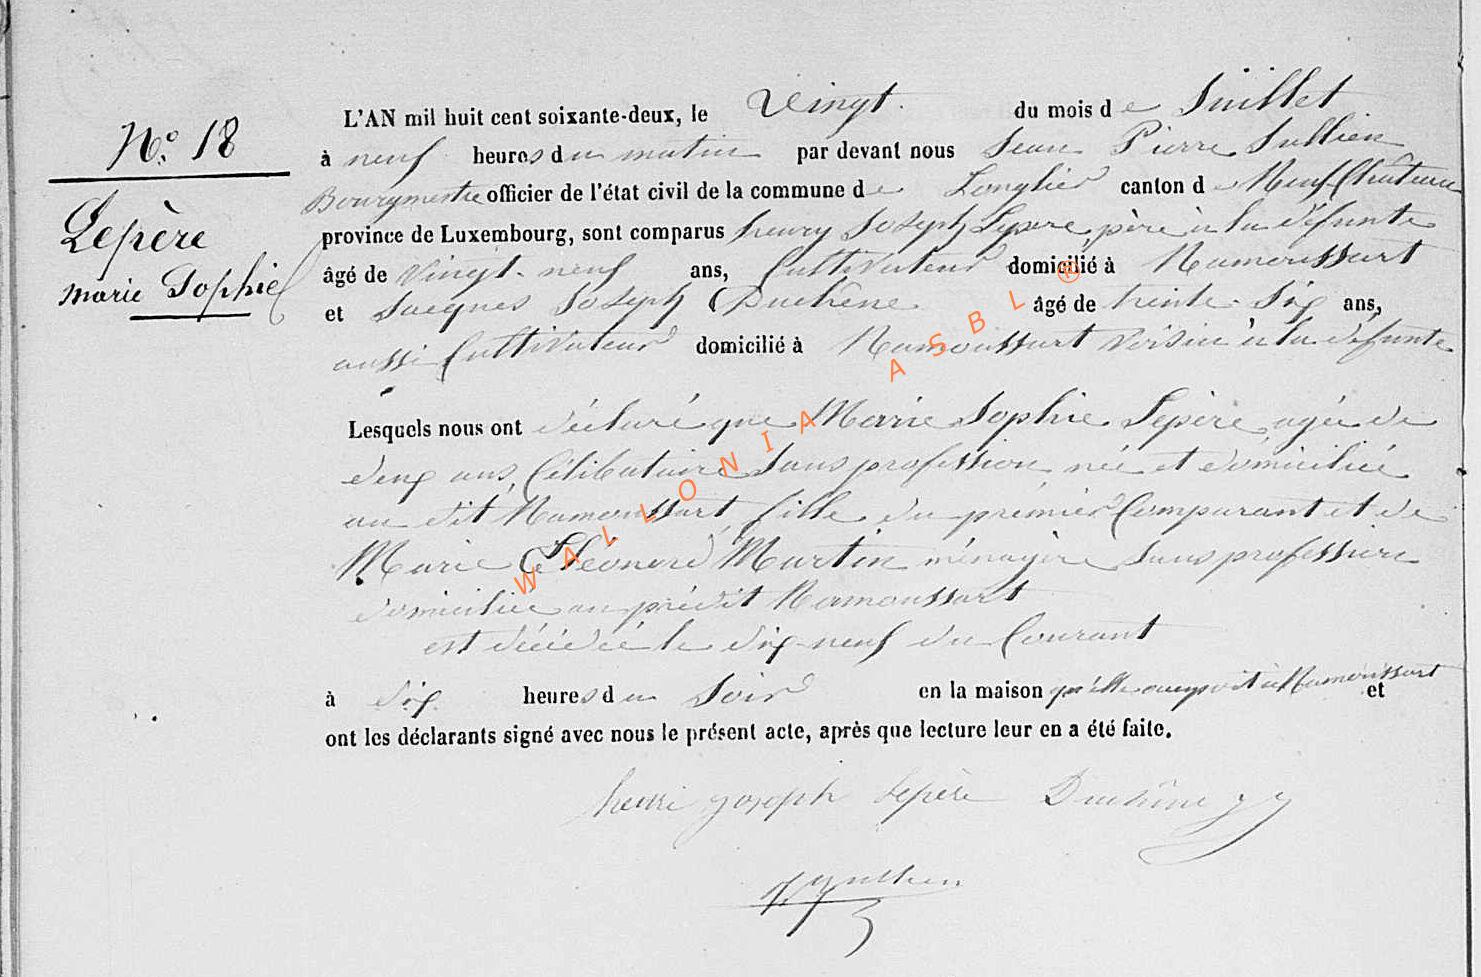 N.° 18
Lepère
marie Sophie
L'AN mil huit cent soixante-deux, le Vingt du mois de Juillet
à neuf heures du matin par devant nous Jean Pierre Jullien
Bourgmestre officier de l'état civil de la commune de Longlier canton de Neufchâteau
province de Luxembourg, sont comparus henry Joseph Lepere, père à la défunte
âgé de Vingt-neuf ans, Cultivateur domicilié à Namoussart
et Jacques Joseph Duchêne âgé de trente-Six ans,
aussi Cultivateur domicilié à Namoussart voisin à la défunte
Lesquels nous ont déclaré que Marie Sophie Lepère, agée de
deux ans, Célibataire, Sans profession née et domiciliée
au dit Namoussart, fille du premier Comparant et de
Marie Eléonore Martin ménagère Sans profession
domiciliée au prédit Namoussart
est décédée le dix-neuf du Courant
à dix heures du Soir en la maison qu'elle occupoit à Namoussart et
ont les déclarants signé avec nous le présent acte, après que lecture leur en a été faite.
henri joseph lepère Duchêne jj
WALLONIA ASBL ®